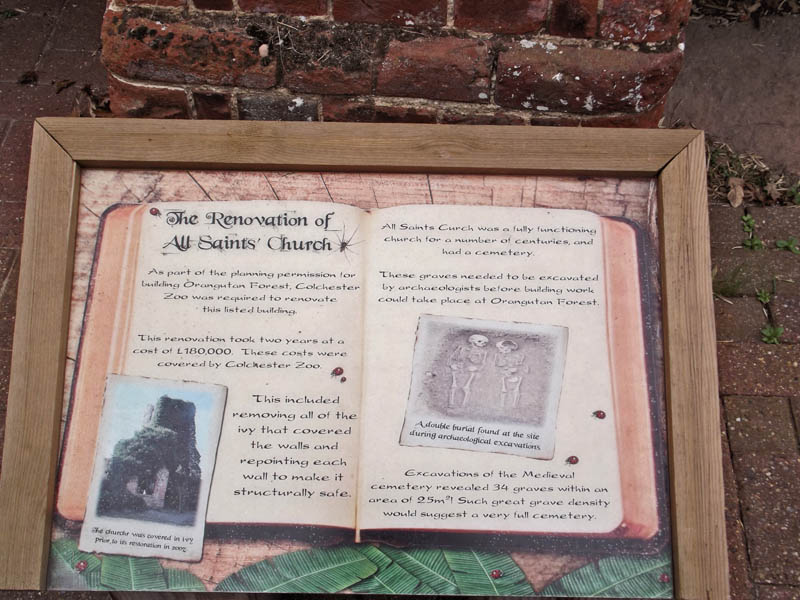 The Renovation of
All Saints' Church
As part of the planning permission for
building Orangutan Forest, Colchester
Zoo was required to renovate
this listed building.
This renovation took two years at a
cost of £180,000. These costs were
covered by Colchester Zoo.
This included
removing all of the
ivy that covered
the walls and
repointing each
wall to make it
structurally safe.
The church was covered in ivy
prior to its restoration in 2007.
All Saints Curch was a fully functioning
church for a number of centuries, and
had a cemetery.
These graves needed to be excavated
by archaeologists before building work
could take place at Orangutan Forest.
A double burial found at the site
during archaeological excavations.
Excavations of the Medieval
cemetery revealed 34 graves within an
area of 25m²! Such great grave density
would suggest a very full cemetery.